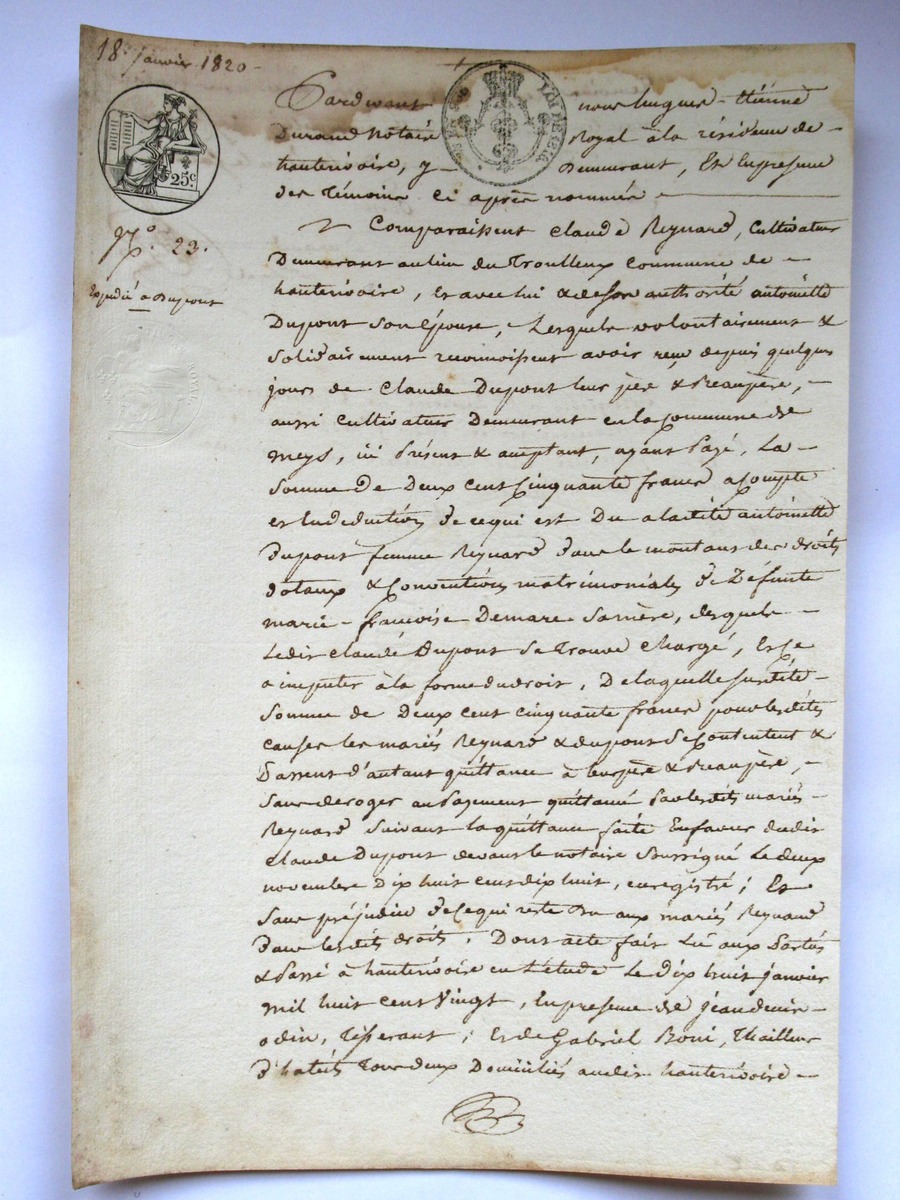 18. Janvier 1820 -
Pardevant nous hugues - étiéne
Durand Notaire Royal à la résidence de
hauterivoire, y Demeurant, Et En presence
des Témoins ci après nommés
Comparaissent Claude Reynard, Cultivateur
Demeurant au lieu du Troulleux Commune de
hauterivoire, et avec lui & de son authorité antoinette
Dupont son épouse, Lesquels volontairement &
Solidairement reconnoissent avoir reçu depuis quelques
jours de Claude Dupont leur père & Beaupère,
aussi Cultivateur Demeurant en la Commune de
meys, ici Présent & aceptant, ayant Payé, La
Somme De Deux Cent Cinquante francs a Compte
et En déduction De ce qui est Du a ladite antoinette
Dupont femme Reynard Dans le montant des droits
dotaux & Conventions matrimoniales De Défunte
marie - françoise Demare Sa mère, desquels
Ledit Claude Dupont Se Trouve Chargé, Et Ce
a imputer à la forme du droit, De laquelle Susdite
Somme de Deux Cent Cinquante francs pour lesdites
Causes les mariés Reynard & dupont Se Contentent &
Passent d'autant quittance à leur père & Beaupère,
Sans deroger au Payement quittancé Par lesdits mariés
Reynard Suivant la quittance faite En faveur dudit
Claude Dupont devant le notaire Soussigné Le deux
novembre Dix huit cent dix huit, enregistré ; Et
Sans préjudice De Ce qui reste Du aux mariés Reynard
Dans lesdits droits. Dont acte fait Lu aux Parties
& Passé à hauterivoire en L'étude Le Dix huit janvier
mil huit Cent Vingt, En presence de jean denis
odin, Tisserant ; Et de Gabriel Boni, Thailleur
D'habits Tous deux Domiciliés audit hauterivoire
25c.
N.o 23.
Expédié a Dupont
ROYAL